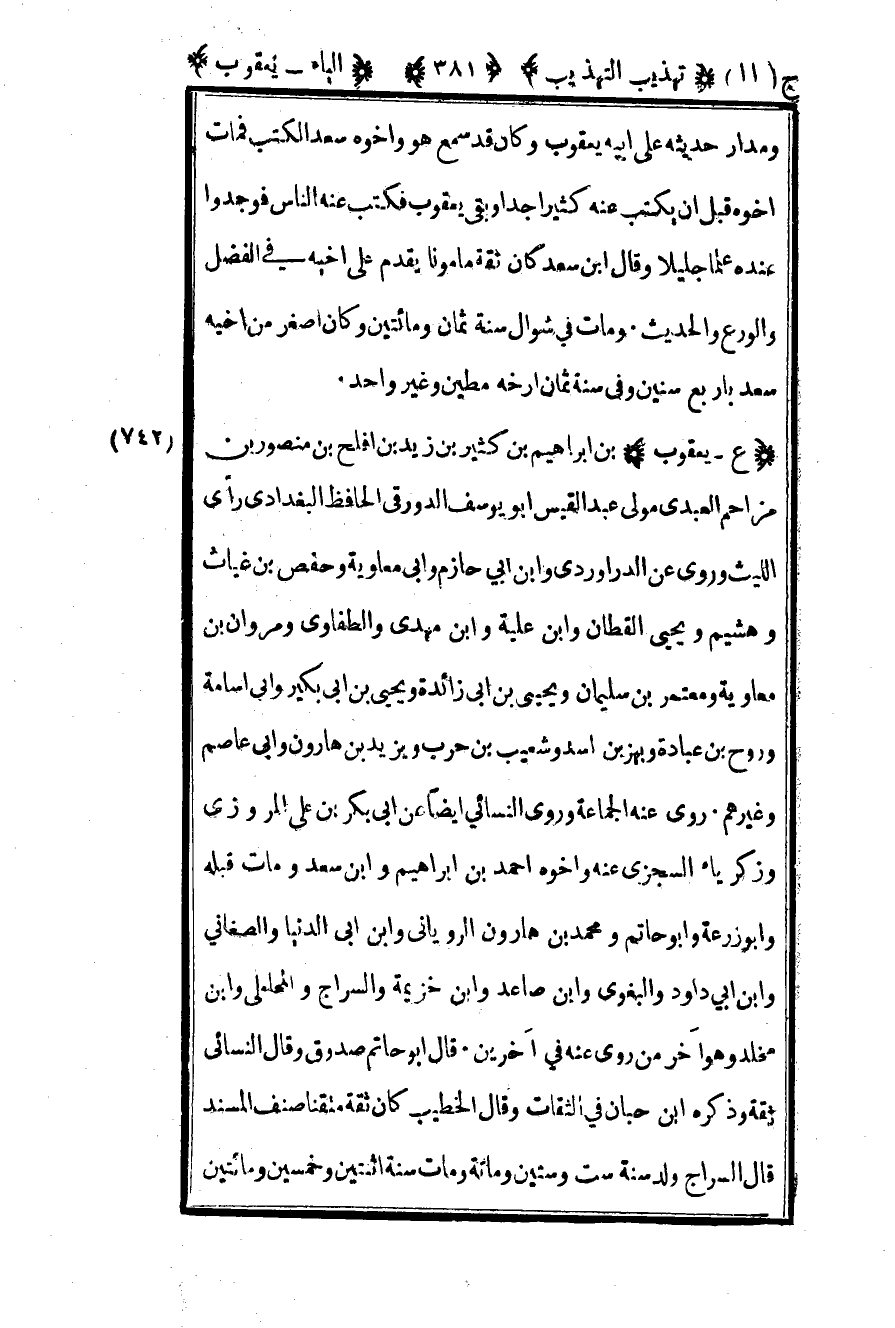 ج (١١) ﴿ تهذيب التهذيب ﴾ ﴿ ٣٨١ ﴾ ﴿ الياء ـ يعقوب ﴾
ومدار حديثه على ابيه يعقوب وكان قد سمع هو واخوه سعد الكتب فمات
اخوه قبل ان يكتب عنه كثيرا جدا وبقى يعقوب فكتب عنه الناس فوجدوا
عنده علما جليلا وقال ابن سعد كان ثقة مامونا يقدم على اخيه في الفضل
والورع والحديث ٠ ومات في شوال سنة ثمان ومائتين وكان اصغر من اخيه
سعد بار بع سنين وفى سنة ثمان ارخه مطين وغير واحد ٠
﴿ ع ـ يعقوب ﴾ بن ابراهيم بن كثير بن زيد بن افلح بن منصور بن (٧٤٢)
مزاحم العبدى مولى عبد القيس ابو يوسف الدورقى الحافظ البغدادى رأى
الليث وروى عن الدراوردى وابن ابي حازم وابى معاوية وحفص بن غياث
و هشيم و يحيى القطان وابن علية و ابن مهدى والطفاوى ومروان بن
معاوية ومعتمر بن سليمان ويحيى بن ابى زائدة ويحيى بن ابى بكير وابى اسامة
وروح بن عبادة وبهز بن اسد وشعيب بن حرب ويزيد بن هارون وابى عاصم
وغيرهم ٠ روى عنه الجماعة وروى النسائي ايضاً عن ابى بكر بن على المر و زى
وزكر ياء السجزى عنه واخوه احمد بن ابراهيم و ابن سعد و مات قبله
وابو زرعة وابو حاتم و محمد بن هارون الرويانى وابن ابى الدنيا والصغاني
وابن ابي داود والبغوى وابن صاعد وابن خزيمة والسراج و المحاملى وابن
مخلد وهو آخر من روى عنه في آخرين ٠ قال ابو حاتم صدوق وقال النسائى
ثقة وذكره ابن حبان في الثقات وقال الخطيب كان ثقة متقنا صنف المسند
قال السراج ولد سنة ست وستين ومائة ومات سنة اثنتين وخمسين ومائتين